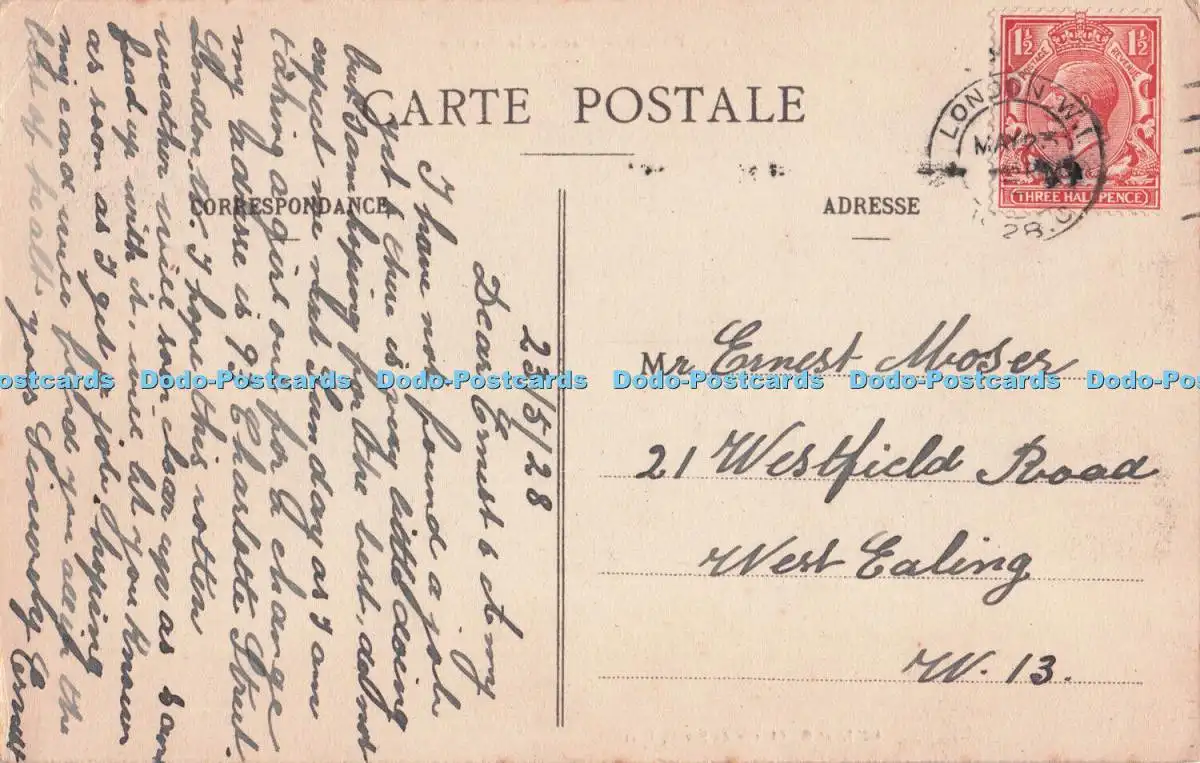 CARTE POSTALE
CORRESPONDANCE
ADRESSE
1½ 1½
POSTAGE REVENUE
THREE HALFPENCE
LONDON. W.1
MAY 23
28.C
23/5/28
Dear Ernest & Amy
I have not found a job
yet there is very little doing
but I am hoping for the best, do not
expect me next Sunday as I am
taking a girl out for a change
my address is 93 Charlotte Street.
London. W. I hope this rotten
weather will soon clear up as I am
fead up with it, will let you know
as soon as I get a job, hoping
my card will find you in the
best of health yours Sincerely Ernest
Mr Ernest Moser
21 Westfield Road
West Ealing
W. 13.
Dodo-Postcards Dodo-Postcards Dodo-Postcards Dodo-Postcards Dodo-Postcards Dodo-Postcards